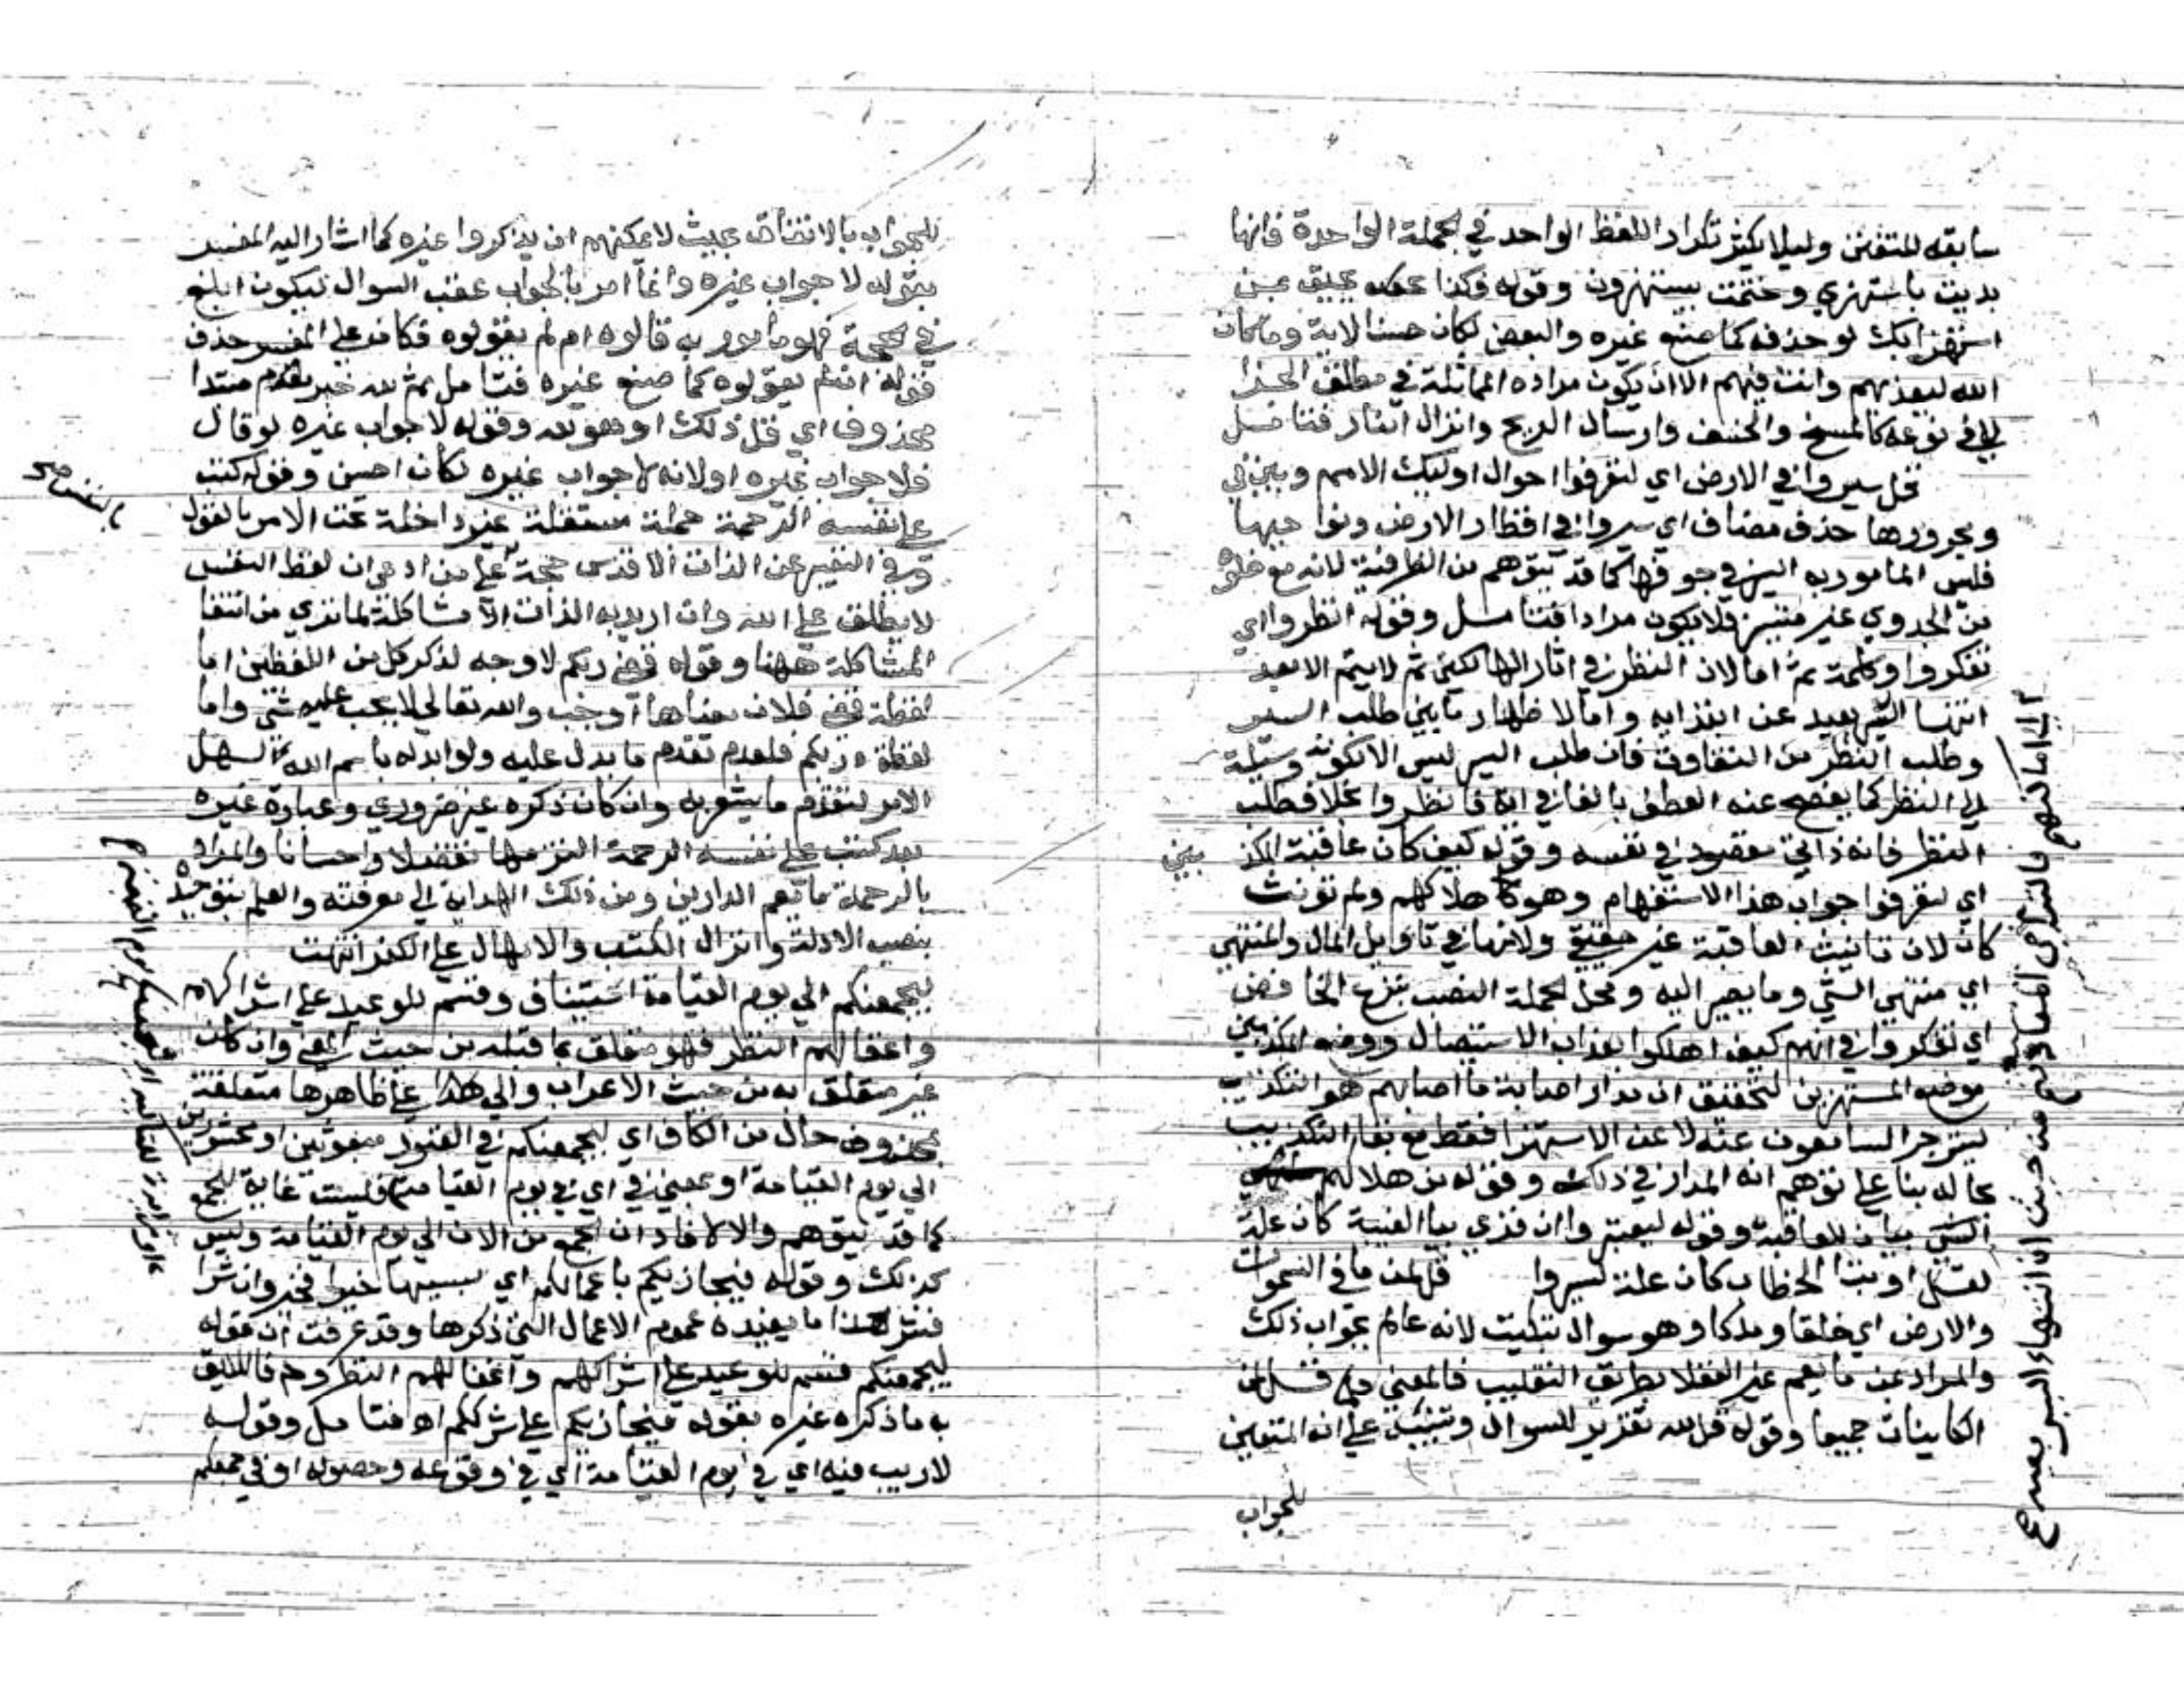 سابقه للتفنن وليلا يكثر تكرار اللفظ الواحد في الجملة الواحدة فانها
بديت باستهزي وختمت بيستهزون وقوله فكذا يحيق بمن
استهزا بك لو حذفه كما صنع غيره والبعض لكان حسنا لاية وما كان
الله ليعذبهم وانت فيهم الا ان يكون مراده المماثلة في مطلق الجزا
لا في نوعه كالمسخ والخسف وارسال الريح وانزال النار فتامل
قل سيروا في الارض اي لتعرفوا احوال اوليك الامم وبين في
ومجرورها حذف مضاف اي سيروا في اقطار الارض ونواحيها
فليس المامور به السير في جوفها كما قد يتوهم من الظرفية لانه مع خلوه
من الجدوي غير متيسر فلا يكون مرادا فتامل وقوله انظروا اي
تفكروا وكلمة ثم اما لان النظر في اثار الهالكين ثم لا يتم الا بعد
انتها السير بعيد عن ابتدايه واما لاظهار ما بين طلب السير
وطلب النظر من التفاوت فان طلب السير ليس الا لكونه وسيلة
الي النظر كما يفصح عنه العطف بالفا في اية فانظروا بخلاف طلب
النظر فانه ذاتي مقصود في نفسه وقوله كيف كان عاقبة المكذ بين
اي لتعرفوا جواب هذا الاستفهام وهو كاهلاكهم ولم تونث
كان لان تانيث العاقبة غير حقيقي ولانها في تاويل المال والمنتهي
اي منتهي الشي وما يصير اليه ومحل الجملة النصب بنزع الخافض
اي تفكروا في انهم كيف اهلكوا بعذاب الاستيصال ووضع المكذبين
موضع المستهزين لتحقيق ان مدار اصابة ما اصابهم هو التكذيب
لينزجر السامعون عنه لا عن الاستهزا فقط مع بقا التكذيب
بحاله بنا علي توهم انه المدار في ذلك وقوله من هلاكهم
بيان للعاقبة وقوله ليعتبروا ان قري بيا الغيبة كان علة
لقل او بتا الخطاب كان علة لسيروا قل لمن ما في السموات
والارض اي خلقا وملكا وهو سوال تبكيت لانه عالم بجواب ذلك
والمراد بمن ما يعم غير العقلا بطريق التغليب فالمعني قل لمن
الكاينات جميعا وقوله قل لله تقرير للسوال وتنبيه علي انه المتعين
للجواب
للجواب بالاتفاق بحيث لا يمكنهم ان يذكروا غيره كما اشار اليه المفسر
بقوله لا جواب غيره وانما امر بالجواب عقب السوال ليكون ابلغ
في الحجة فهو مامور به قالوه ام لم يقولوه فكان علي المفسر حذف
قوله ان لم يقولوه كما صنع غيره فتامل ثم لله خبر مقدم مبتدا
محذوف اي قل ذلك او هو لله وقوله لا جواب غيره لو قال
فلا جواب غيره او لانه لا جواب غيره لكان احسن وقوله كتب
علي نفسه الرحمة جملة مستقلة غير داخلة تحت الامر بالقول
وفي التعبير عن الذات الاقدس حجة علي من ادعي ان لفظ النفس
بالنفس صح
لا يطلق علي الله وان اريد به الذات الا مشاكلة لما تري من انتفا
المشاكلة ههنا وقوله قضي ربكم لا وجه لذكر كل من اللفظين اما
لفظة قضي فلان معناها اوجب والله تعالي لا يجب عليه شي واما
لفظة ربكم فلعدم تقدم ما يدل عليه ولو ابدله باسم الله لسهل
الامر لتقدم ما يشعر به وان كان ذكره غير ضروري وعبارة غيره
بعد كتب علي نفسه الرحمة التزمها تفضلا واحسانا والمراد
بالرحمة ما يعم الدارين ومن ذلك الهداية الي معرفته والعلم بتوحيده
بنصب الادلة وانزال الكتب والامهال علي الكفر انتهت
ليجمعنكم الي يوم القيامة استيناف وقسم للوعيد علي اشراكهم
واغفالهم النظر فهو متعلق بما قبله من حيث المعني وان كان
غير متعلق به من حيث الاعراب والي هنا علي ظاهرها متعلقة
بمحذوف حال من الكاف اي ليجمعنكم في القبور مبعوثين او محشورين
الي يوم القيامة او بمعني في اي في يوم القيامة فليست غاية للجمع
كما قد يتوهم والا لافاد ان الجمع من الان الي يوم القيامة وليس
كذلك وقوله فيجازيكم باعمالكم اي بسببها خيرا فخير وان شرا
فشر هذا ما يفيده عموم الاعمال التي ذكرها وقد عرفت ان قوله
ليجمعنكم قسم للوعيد علي اشراكهم واغفالهم النظر وح فالملايق
به ما ذكره غيره بقوله فيجازيكم علي شرككم اه فتامل وقوله
لا ريب فيه اي في يوم القيامة اي في وقوعه وحصوله او في جمعكم